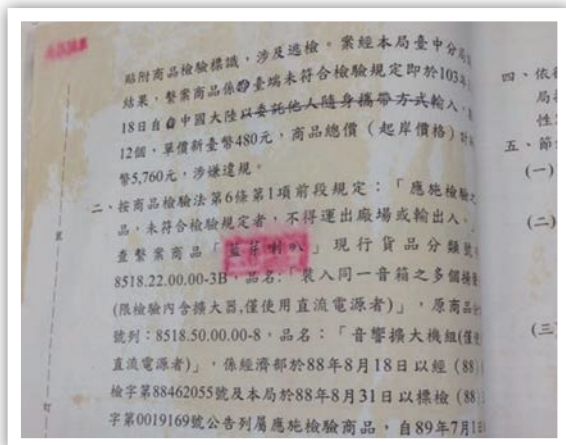 貼附商品檢驗標識，涉及逃檢。案經本局臺中分局
結果，繫案商品係臺端未符合檢驗規定即於103年
18日自中國大陸以委託他人隨身攜帶方式輸入，
12個，單價新臺幣480元，商品總價（起岸價格）
幣5,760元，涉嫌違規。
二、按商品檢驗法第6條第1項前段規定：「應施檢驗之
品，未符合檢驗規定者，不得運出廠場或輸出入。」
查繫案商品「藍芽喇叭」現行貨品分類號
8518.22.00.00-3B，品名：「裝入同一音箱之多個揚聲
(限檢驗內含擴大器,僅使用直流電源者)」，原商品分
號列：8518.50.00.00-8，品名：「音響擴大機組(僅使
直流電源者)」，係經濟部於88年8月18日以經（88）
檢字第88462055號及本局於88年8月31日以標檢（88）
字第0019169號公告列屬應施檢驗商品，自89年7月1日
訂
四、依
局
性
五、節
(一)
(二)
(三)